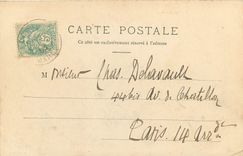 CARTE POSTALE
Ce côté est exclusivement réservé à l'adresse
Monsieur Chas. Delavault
44 bis Av. de Chatillon
Paris. 14 Arr.